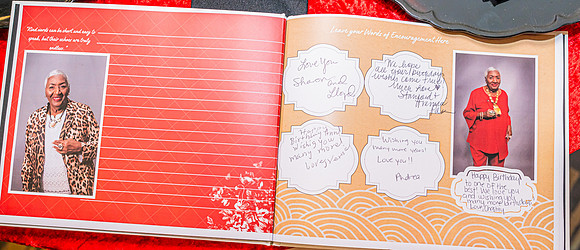 "Kind words can be short and easy to
speak, but their echoes are truly
endless."
Leave your Words of Encouragement Here
Love you
Sharon and
Lloyd
We hope
all your birthday
wishes come true!
Much love
Happy
Birthday
Wishing you
many more!
Wishing you
many more years!
Love you!!
Andrea
Happy Birthday
to one of the
best! We love you
and wishing you
many more birthdays